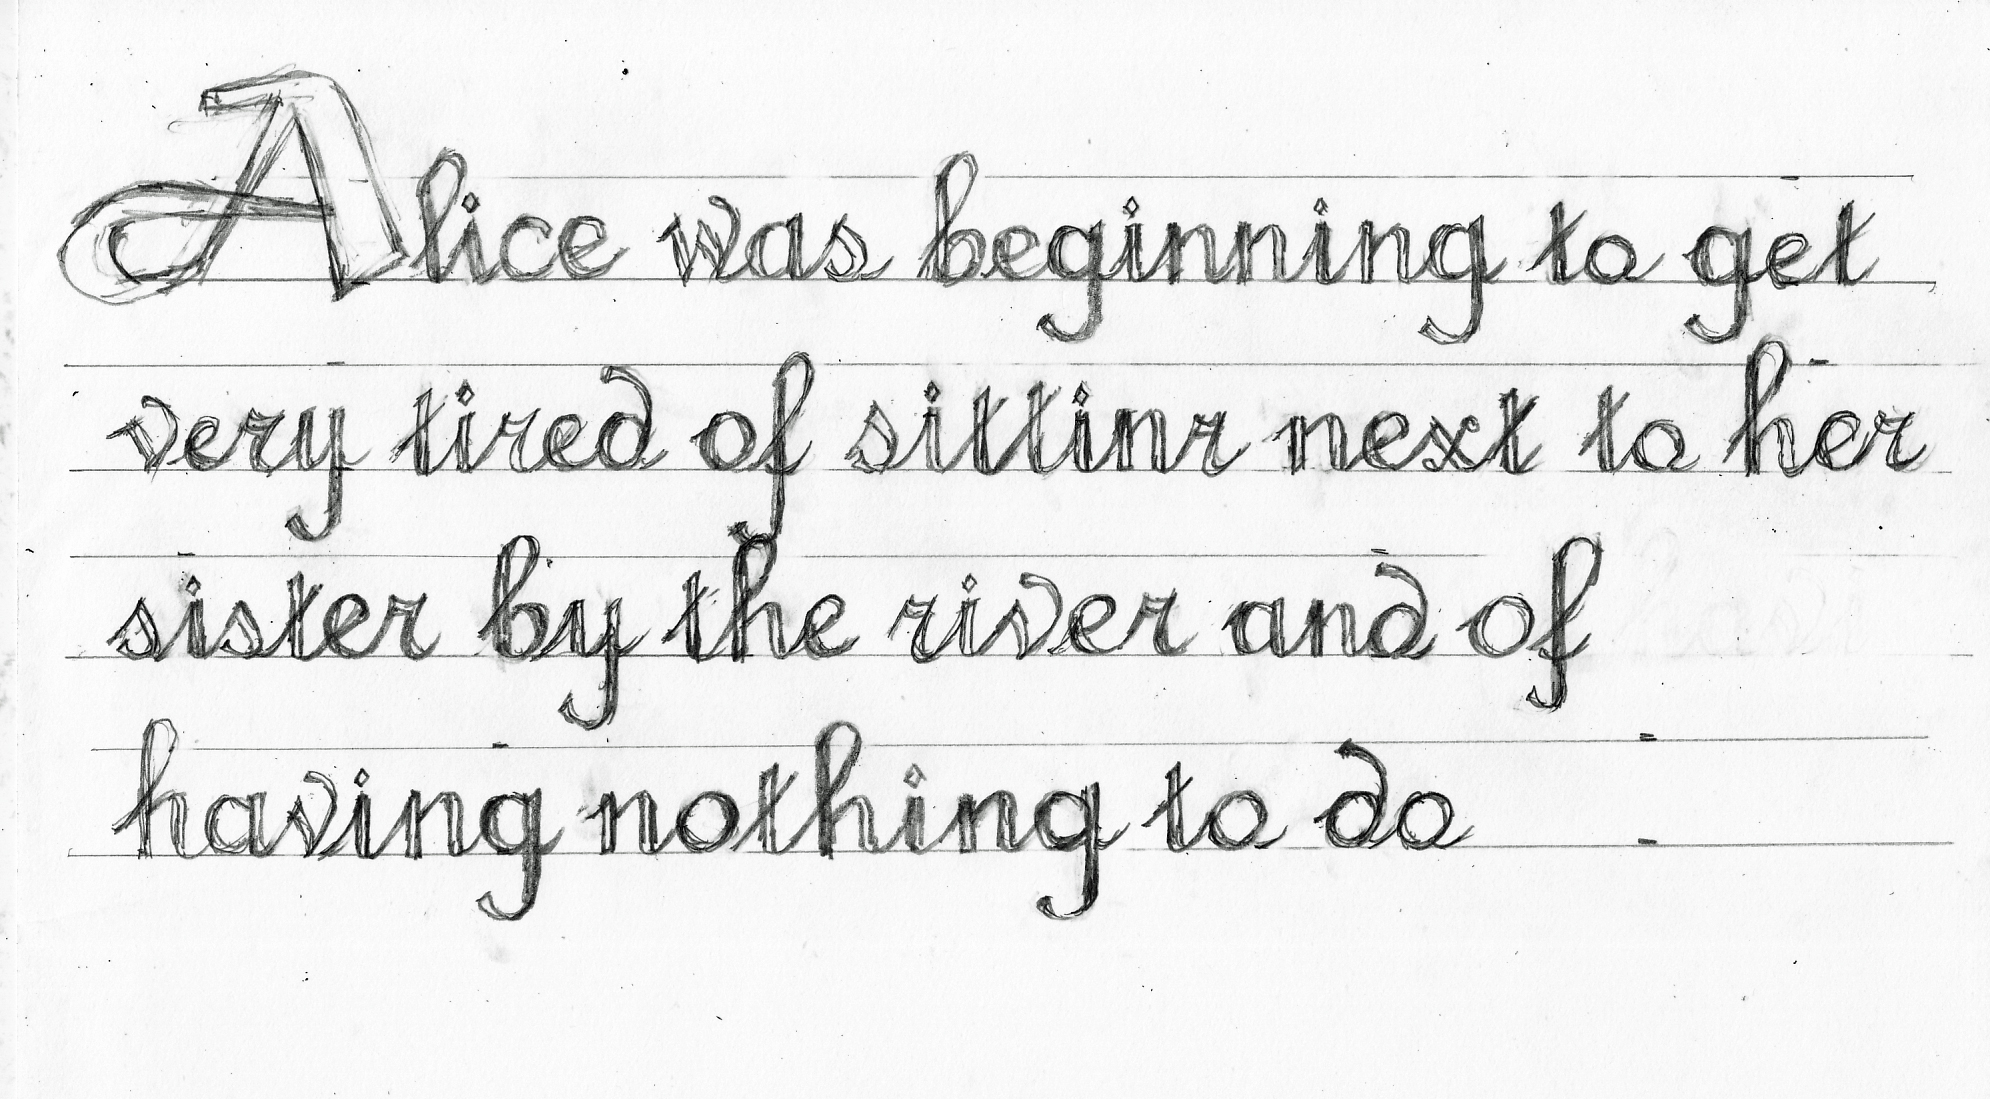 Alice was beginning to get
very tired of sittinr next to her
sister by the river and of
having nothing to do